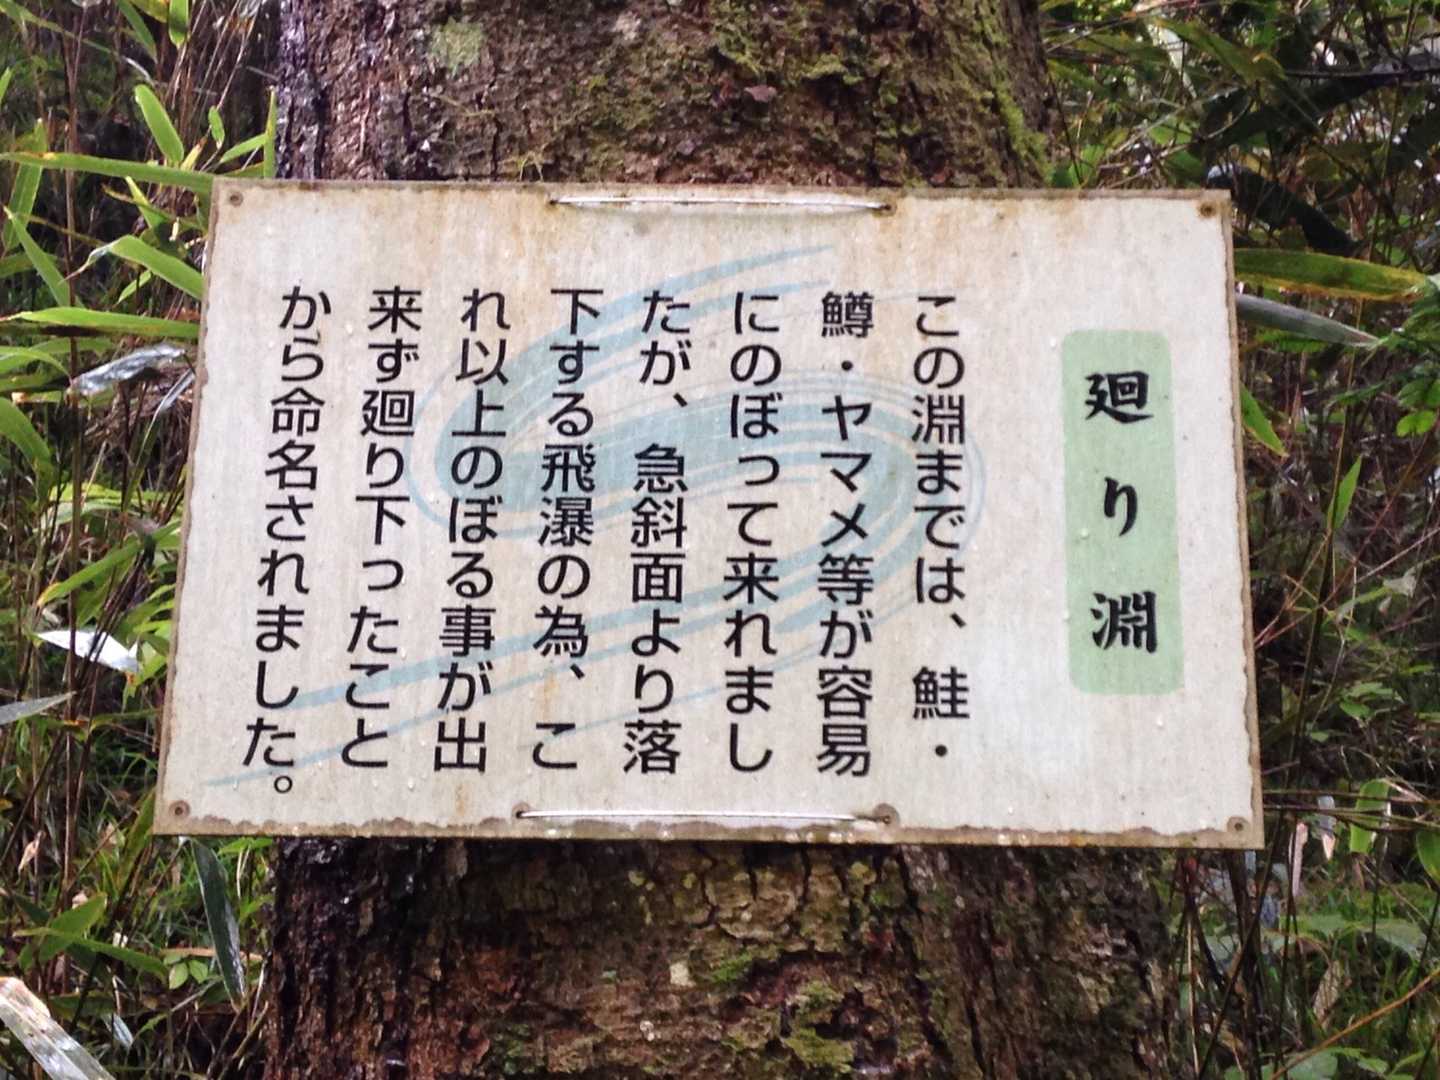 廻り淵
この淵までは、鮭・
鱒・ヤマメ等が容易
にのぼって来れまし
たが、急斜面より落
下する飛瀑の為、こ
れ以上のぼる事が出
来ず廻り下ったこと
から命名されました。